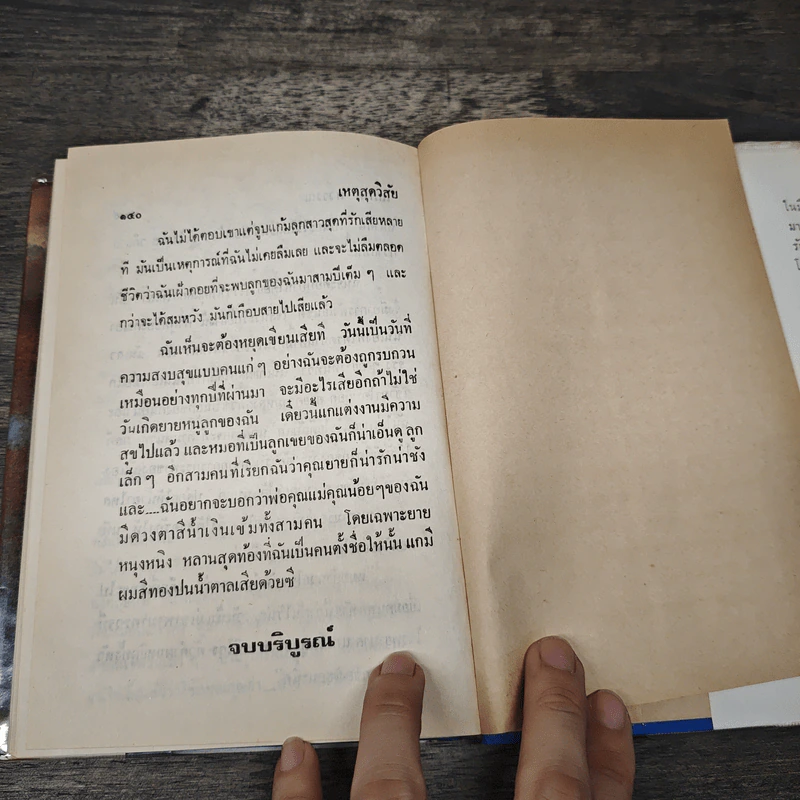 เหตุสุดวิสัย
๑๔๐
ฉันไม่ได้ตอบเขาแต่จูบแก้มลูกสาวสุดที่รักเสียหลาย
ที มันเป็นเหตุการณ์ที่ฉันไม่เคยลืมเลย และจะไม่ลืมตลอด
ชีวิตว่าฉันเฝ้าคอยที่จะพบลูกของฉันมาสามปีเต็ม ๆ และ
กว่าจะได้สมหวัง มันก็เกือบสายไปเสียแล้ว
ฉันเห็นจะต้องหยุดเขียนเสียที วันนี้เป็นวันที่
ความสงบสุขแบบคนแก่ ๆ อย่างฉันจะต้องถูกรบกวน
เหมือนอย่างทุกปีที่ผ่านมา จะมีอะไรเสียอีกถ้าไม่ใช่
วันเกิดยายหนูลูกของฉัน เดี๋ยวนี้แกแต่งงานมีความ
สุขไปแล้ว และหมอที่เป็นลูกเขยของฉันก็น่าเอ็นดู ลูก
เล็ก ๆ อีกสามคนที่เรียกฉันว่าคุณยายก็น่ารักน่าชัง
และ....ฉันอยากจะบอกว่าพ่อคุณแม่คุณน้อยๆของฉัน
มีดวงตาสีน้ำเงินเข้มทั้งสามคน โดยเฉพาะยาย
หนุงหนิง หลานสุดท้องที่ฉันเป็นคนตั้งชื่อให้นั้น แกมี
ผมสีทองปนน้ำตาลเสียด้วยซี
จบบริบูรณ์